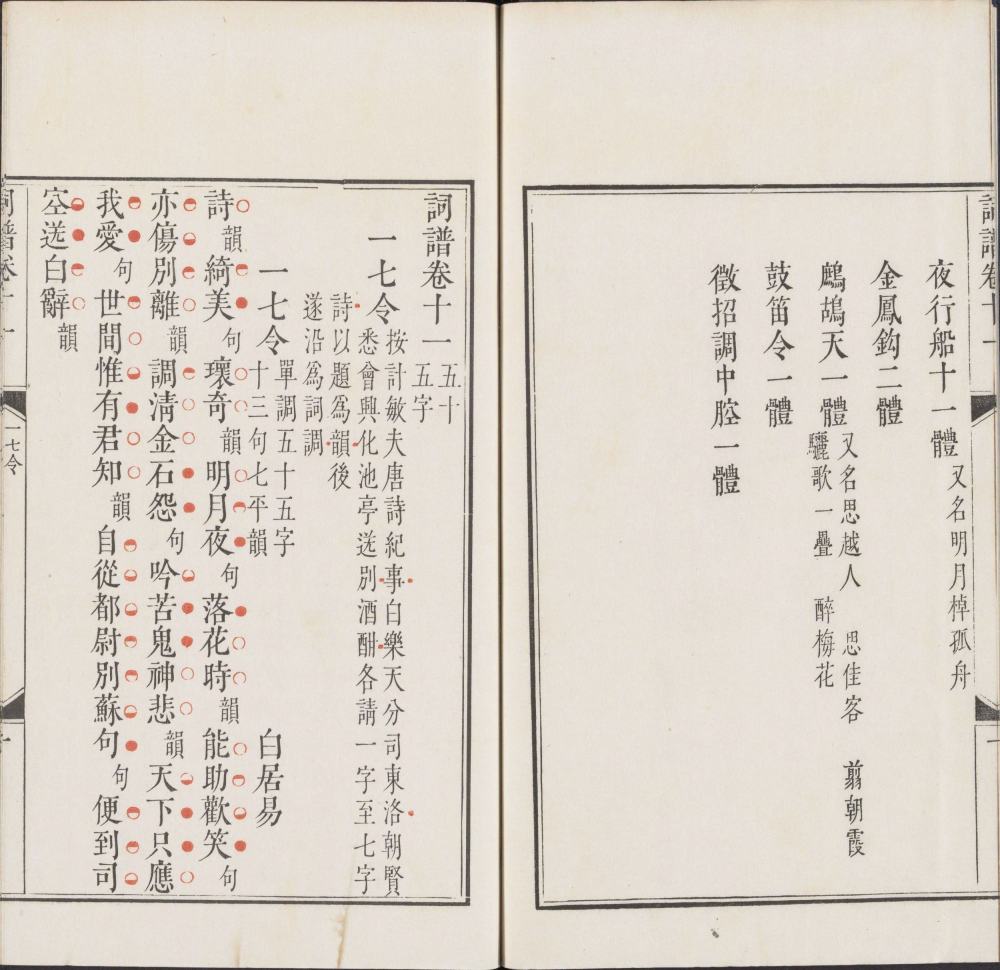 夜行船十一體又名明月棹孤舟
金鳳鈎二體
鷓鴣天一體又名思越人 思佳客 翦朝霞
驪歌一疊 醉梅花
鼓笛令一體
徵招調中腔一體
詞譜卷十一五十
五字
一七令按計敏夫唐詩紀事白樂天分司東洛朝賢
悉會興化池亭送別酒酣各請一字至七字
詩以題爲韻後
遂沿爲詞調
一七令單調五十五字
十三句七平韻
白居易
詩韻綺美句瓌奇韻明月夜句落花時韻能助歡笑句
亦傷別離韻調清金石怨句吟苦鬼神悲韻天下只應
我愛句世間惟有君知韻自從都尉別蘇句句便到司
空送白辭韻
一七令